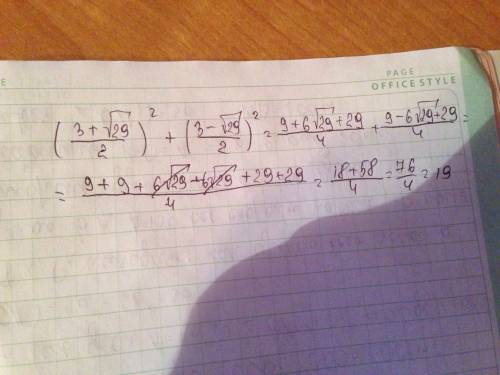 PAGE
E OFFICE STYLE
((3+√29)/2)² + ((3-√29)/2)² = (9+6√29+29)/4 + (9-6√29+29)/4 =
= (9+9+6√29+6√29+29+29)/4 = (18+58)/4 = 76/4 = 19